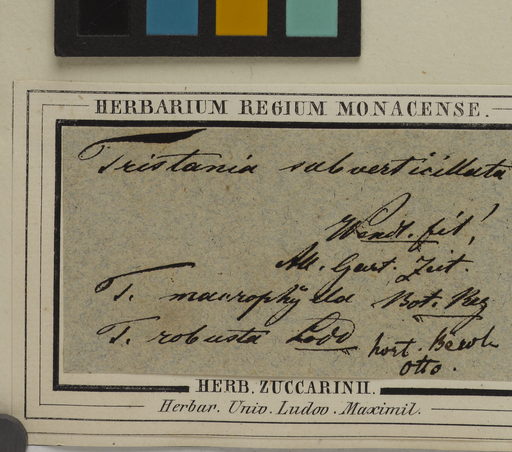 HERBARIUM REGIUM MONACENSE.
Tristania subverticillata
Wendl. fil!
All. Gart. Zeit.
T. macrophylla Bot. Reg
T. robusta Lodd hort. Berol.
Otto.
HERB. ZUCCARINII.
Herbar. Univ. Ludov. Maximil.